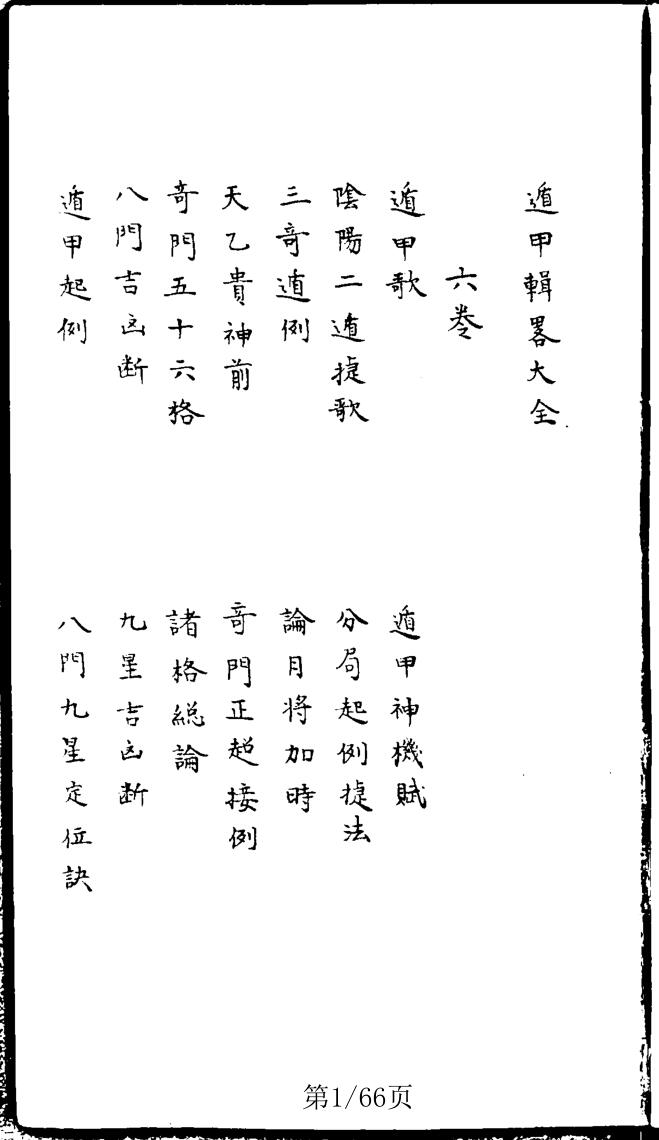 遁甲輯畧大全
六卷
遁甲歌
遁甲神機賦
陰陽二遁捷歌
分局起例捷法
三奇遁例
論月将加時
天乙貴神前
奇門正超接例
奇門五十六格
諸格総論
八門吉凶断
九星吉凶断
遁甲起例
八門九星定位訣
第1/66页